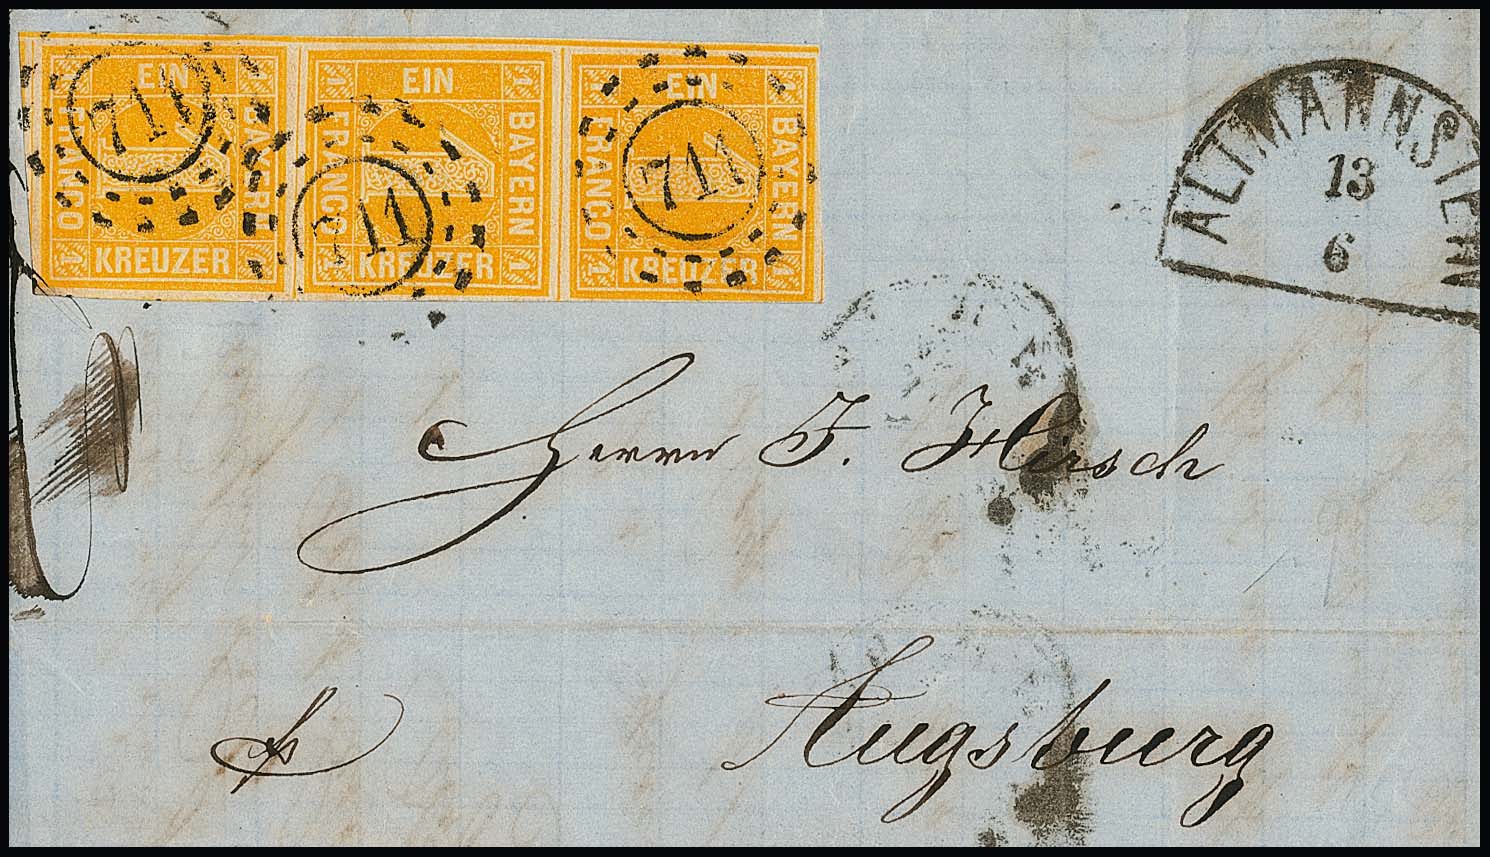 1 EIN 1
FRANCO
BAYERN
1 KREUZER
711
1 EIN 1
FRANCO
BAYERN
KREUZER 1
711
1 EIN 1
FRANCO
BAYERN
1 KREUZER 1
711
ALTMANNSTEIN
13
6
Herrn J. Hirsch
Augsburg